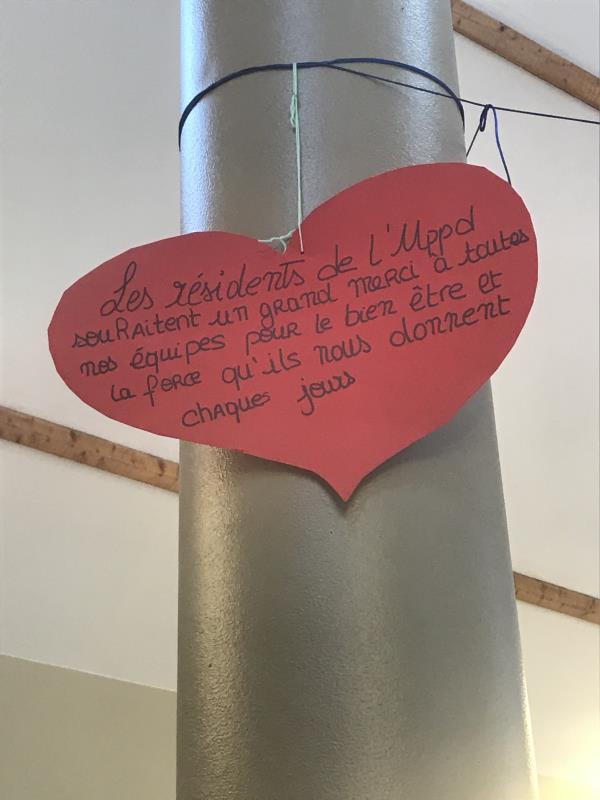 Les résidents de l'Uppd
souhaitent un grand merci à toutes
nos équipes pour le bien être et
la force qu'ils nous donnent
chaques jours